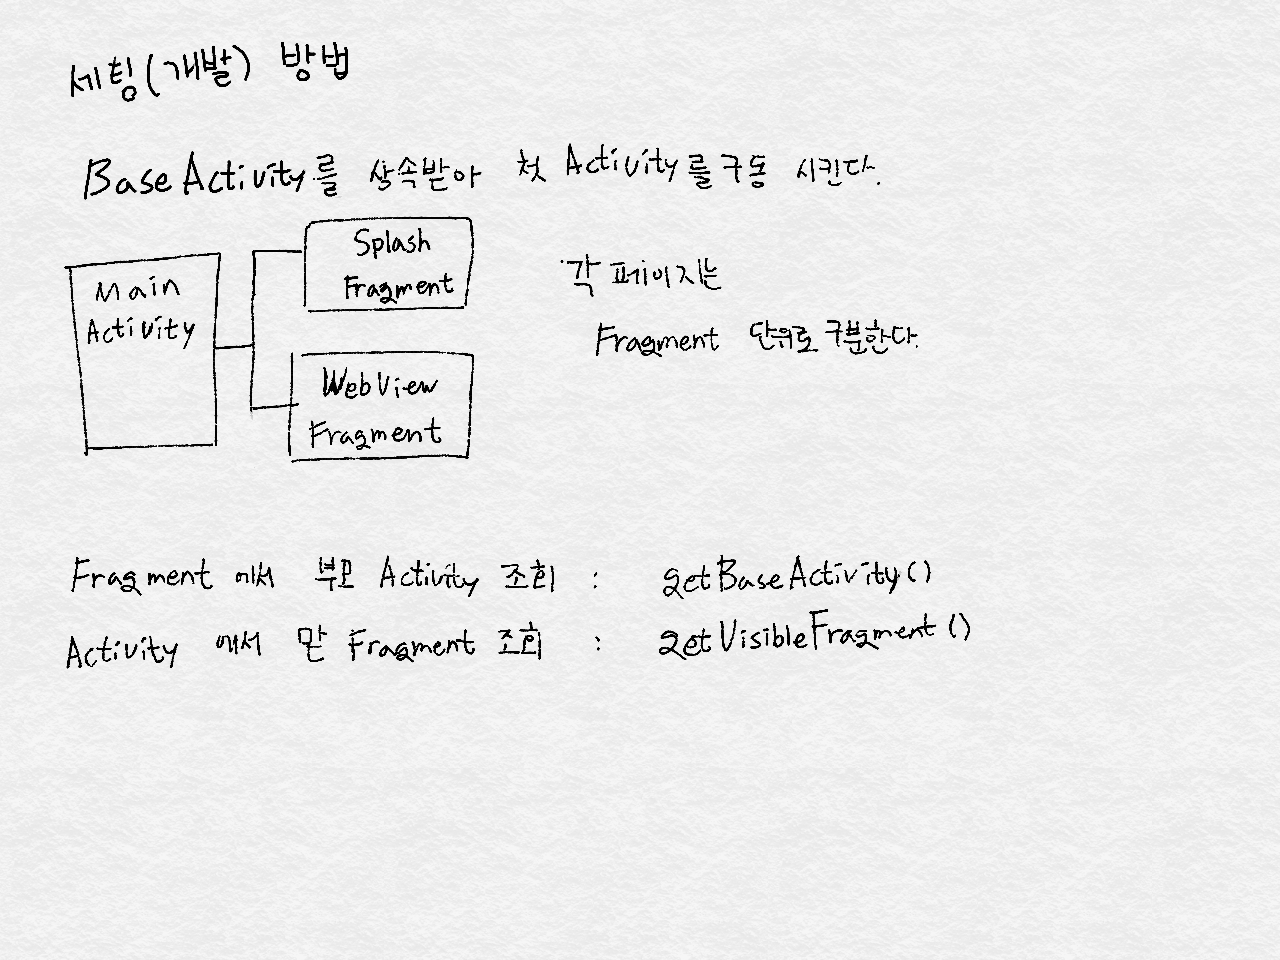 세팅(개발) 방법
Base Activity를 상속받아 첫 Activity를 구동 시킨다.
Main
Activity
Splash
Fragment
WebView
Fragment
각 페이지는
Fragment 단위로 구분한다.
Fragment 에서 부모 Activity 조회 : getBaseActivity()
Activity 에서 맏 Fragment 조회 : getVisibleFragment()